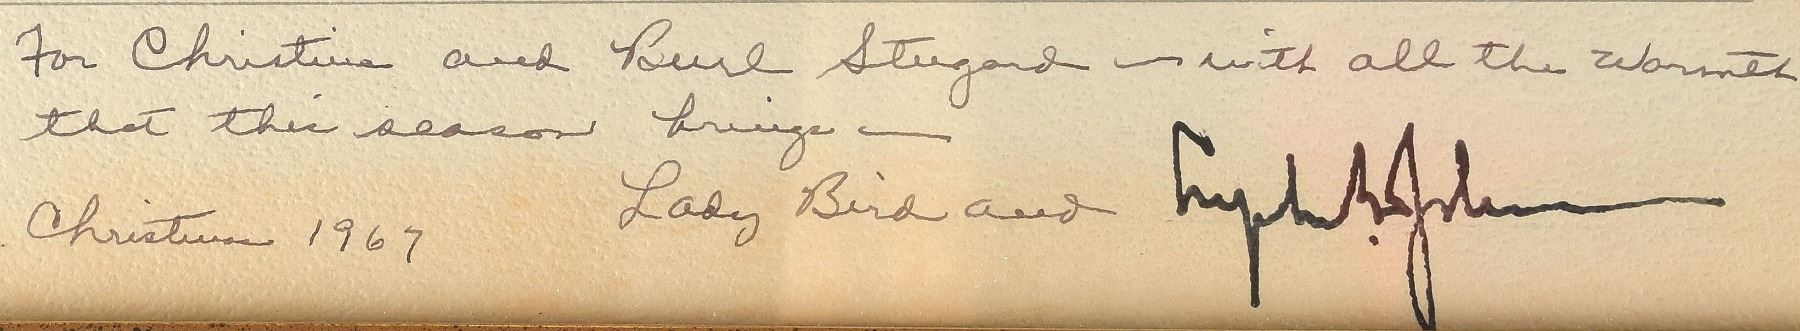 For Christine and Burl Stugard — with all the warmth
that this season brings —
Lady Bird and Lyndon B. Johnson
Christmas 1967